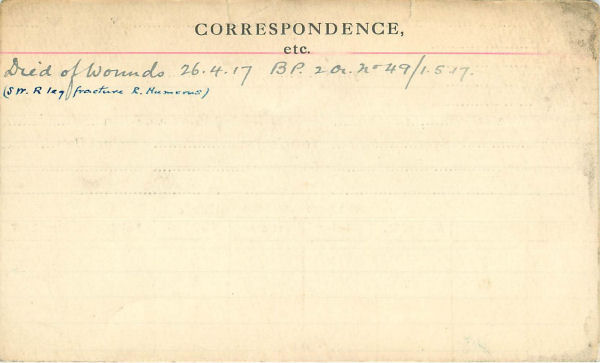 CORRESPONDENCE,
etc.
Died of Wounds 26.4.17 B.P. 2 Or. No 49/1.5.17.
(S W. R leg fracture R. Humerus)